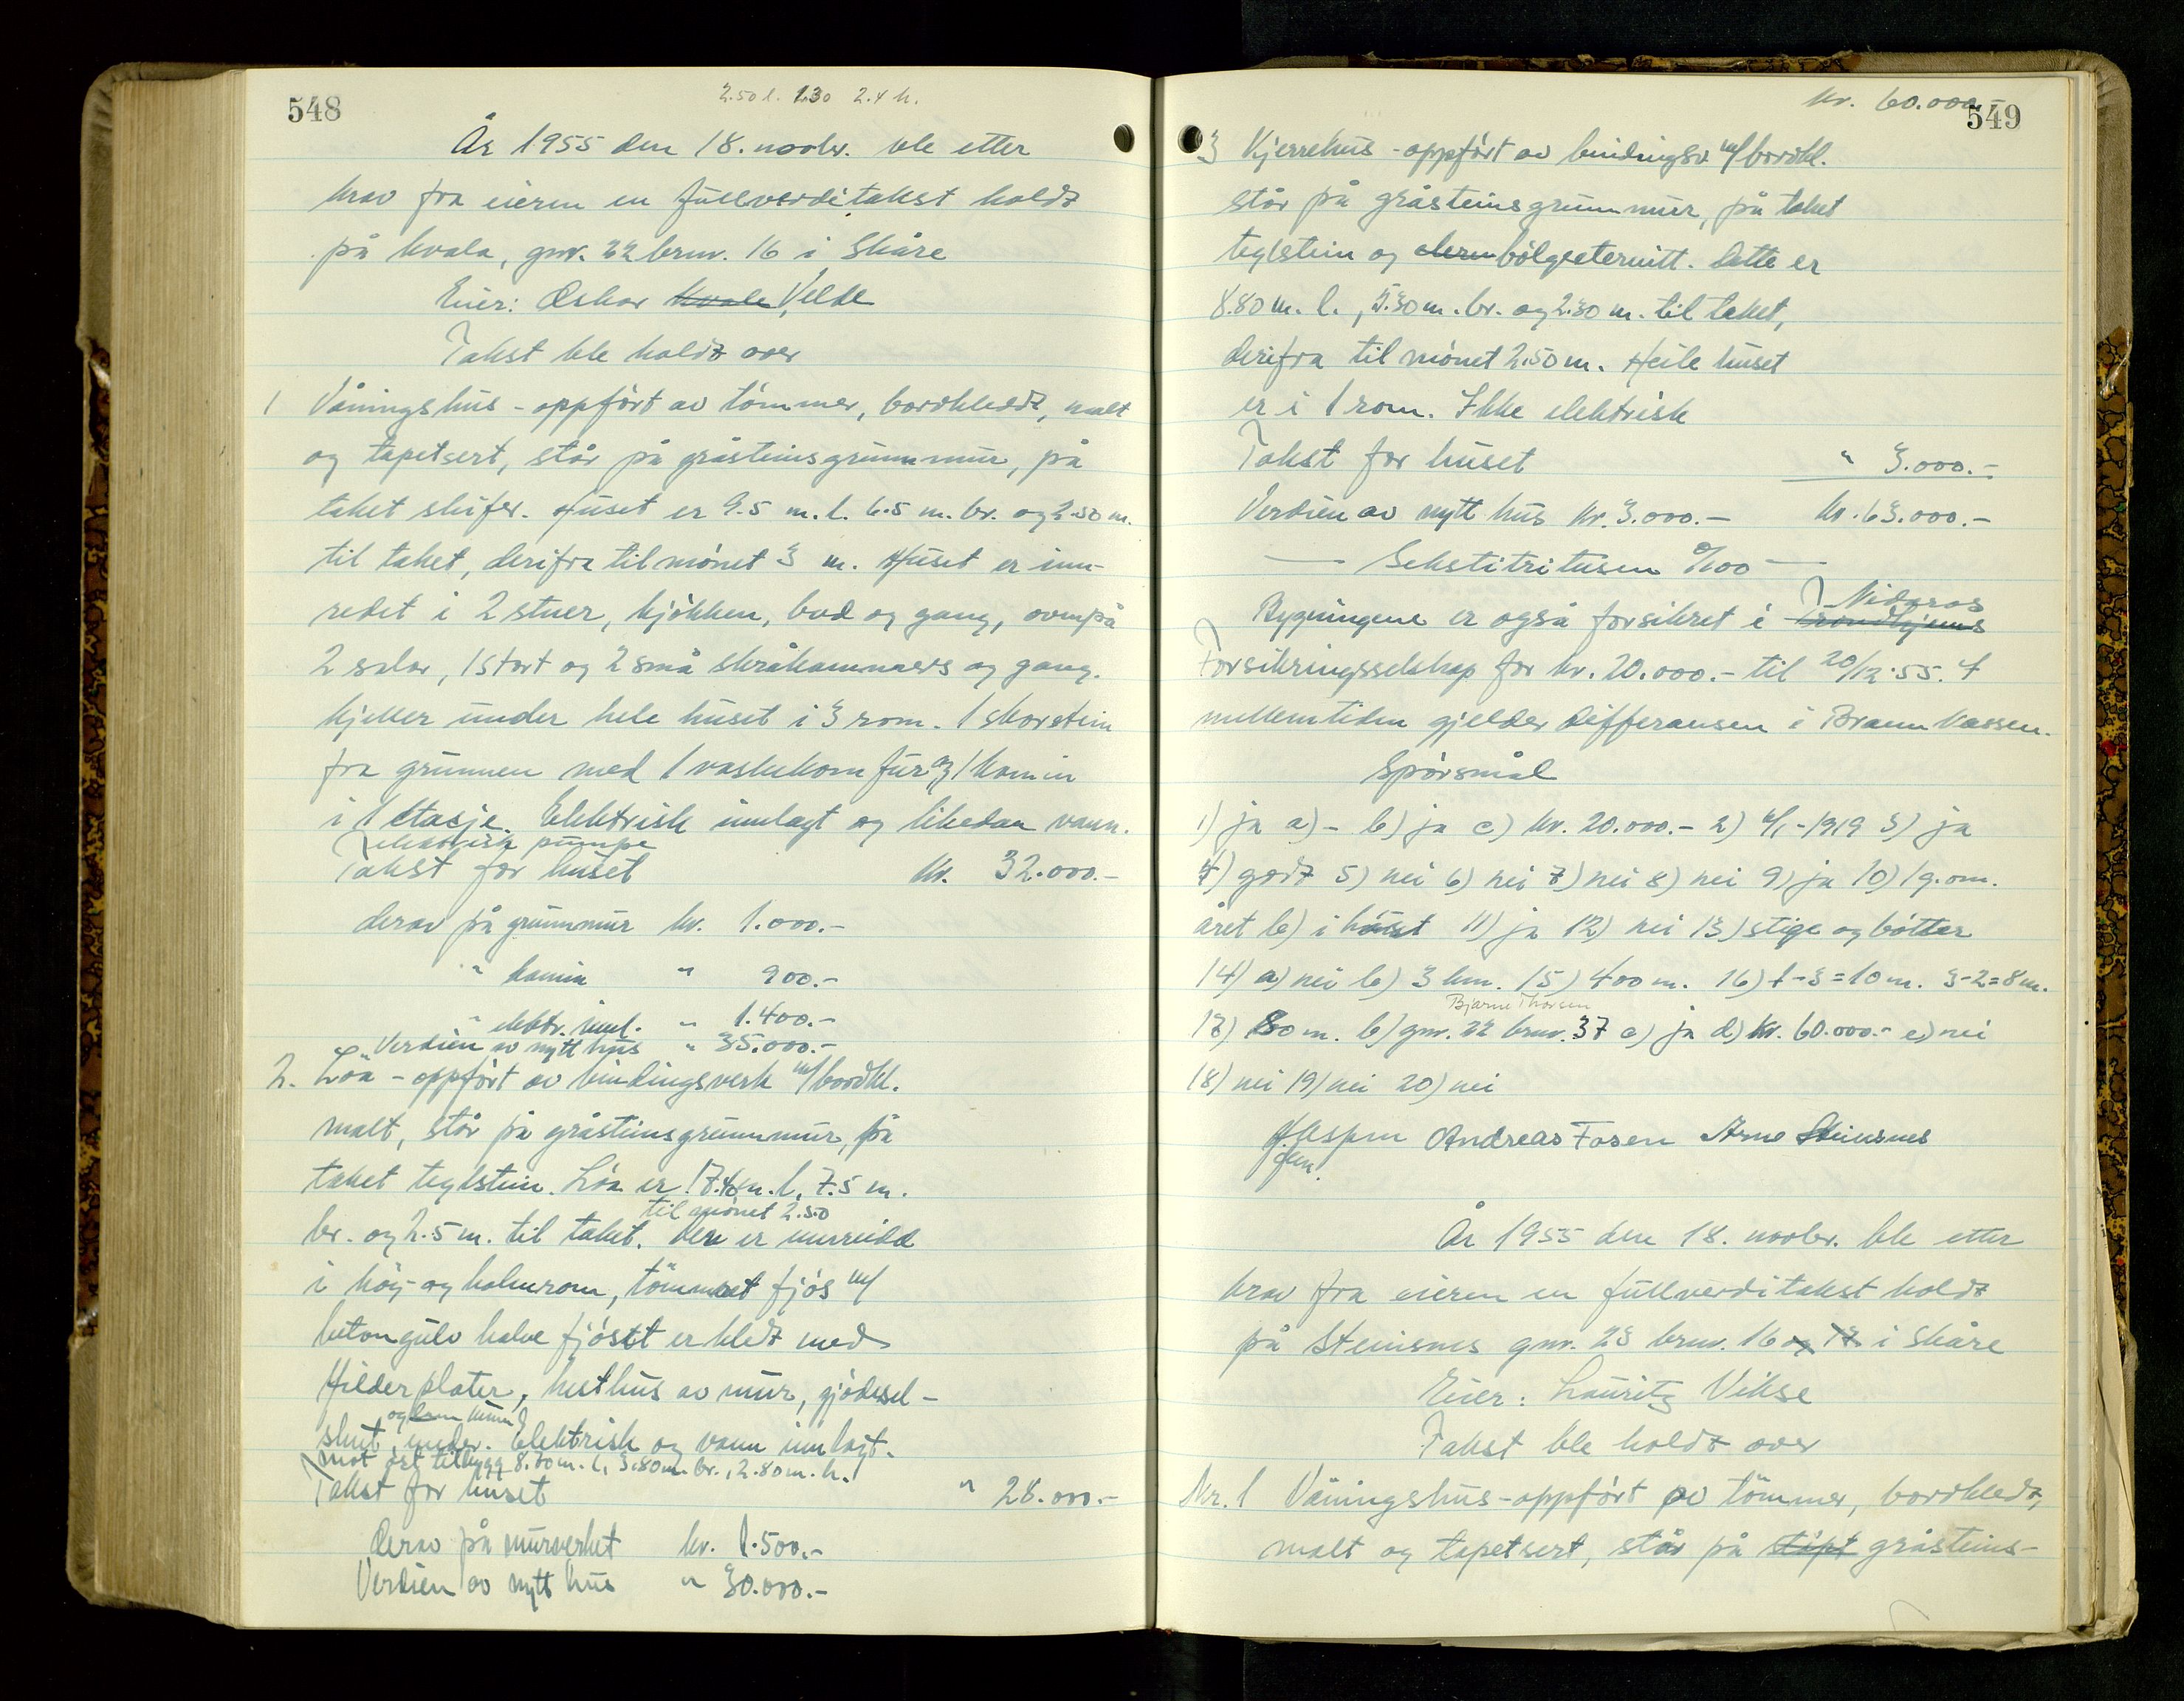 548
2.50 l. 1.30 2.4 h.
År 1955 den 18. novbr. ble etter
krav fra eieren en fullverditakst holdt
på Kvala, gnr. 22 brnr. 16 i Skåre
Eier: Oskar Kvale Velde
Takst ble holdt over
1 Våningshus - oppført av tømmer, bordkledt, malt
og tapetsert, står på gråsteinsgrunnmur, på
taket skifer. Huset er 9.5 m. l. 6.5 m. br. og 2.50 m.
til taket, derifra til mønet 3 m. Huset er inn-
redet i 2 stuer, kjøkken, bod og gang, ovenpå
2 saler, 1 stort og 2 små skråkammers og gang.
Kjeller under hele huset i 3 rom. 1 skorstein
fra grunnen med 1 vaskekomfur og 1 kamin
i 1 etasje. Elektrisk innlagt og likedan vann.
elektrisk pumpe
Takst for huset kr. 32.000.-
derav på grunnmur kr. 1.000.-
" kamin " 900.-
" elektr. innl. " 1.400.-
Verdien av nytt hus " 35.000.-
2. Løa - oppført av bindingsverk m/bordkl.
malt, står på gråsteinsgrunnmur, på
taket teglstein. Løa er 17.40 m. l. 7.5 m.
til mønet 2.50
br. og 2.5 m. til taket. Den er innreidd
i høy- og halmrom, tømmret fjøs m/
betongulv halve fjøset er kledt med
Hilder plater, hesthus av mur, gjødsel-
og
skut under. Elektrisk og vann innlagt.
mot øst tilbygg 8.70 m. l, 3.80 m. br., 2.80 m. h.
Takst for huset " 28.000.-
Derav på murverket kr. 1.500.-
Verdien av nytt hus " 30.000.-
kr. 60.000.-
549
3 Kjerrehus - oppført av bindingsv. m/bordkl.
står på gråsteinsgrunnmur, på taket
teglstein og bølgeeternitt. Dette er
8.80 m. l., 5.30 m. br. og 2.30 m. til taket,
derifra til mønet 2.50 m. Heile huset
er i 1 rom. Ikke elektrisk
Takst for huset " 3.000.-
Verdien av nytt hus kr. 3.000.- kr. 63.000.-
— Sekstitritusen 0/100 —
Nidaros
Bygningene er også forsikret i Trondhjems
Forsikringsselskap for kr. 20.000.- til 20/12.55. I
mellemtiden gjelder differansen i Brannkassen.
Spørsmål
1) ja a) - b) ja c) kr. 20.000.- 2) 1/1-1919 3) ja
4) godt 5) nei 6) nei 7) nei 8) nei 9) ja 10) 1 g. om.
året b) i høst 11) ja 12) nei 13) stige og bøtter
14) a) nei b) 3 km. 15) 400 m. 16) 1-3 = 10 m. 3-2 = 8 m.
Bjarne Thorsen
17) 80 m. b) gnr. 22 brnr. 37 c) ja d) kr. 60.000.- e) nei
18) nei 19) nei 20) nei
Andreas Fosen Arne Steinsnes
År 1955 den 18. novbr. ble etter
krav fra eieren en fullverditakst holdt
på Steinsnes gnr. 23 brnr. 16 og 17 i Skåre
Eier: Lauritz Vikse
Takst ble holdt over
Nr. 1 Våningshus - oppført av tømmer, bordkledt,
malt og tapetsert, står på støpt gråsteins-